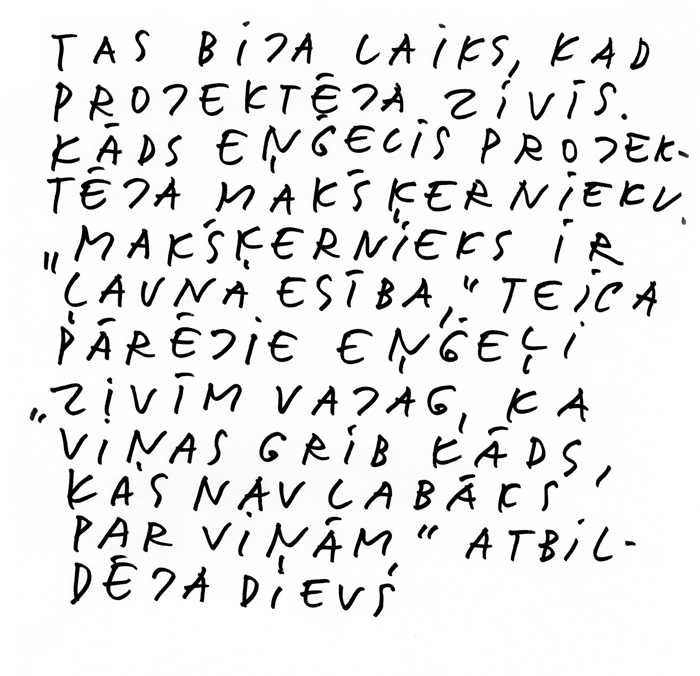 TAS BIJA LAIKS, KAD
PROJEKTĒJA ZIVIS.
KĀDS EŅĢELIS PROJEK-
TĒJA MAKŠĶERNIEKU.
„MAKŠĶERNIEKS IR
ĻAUNA ESĪBA,“ TEICA
PĀRĒJIE EŅĢEĻI
„ZIVĪM VAJAG, KA
VIŅAS GRIB KĀDS,
KAS NAV LABĀKS
PAR VIŅĀM,“ ATBIL-
DĒJA DIEVS